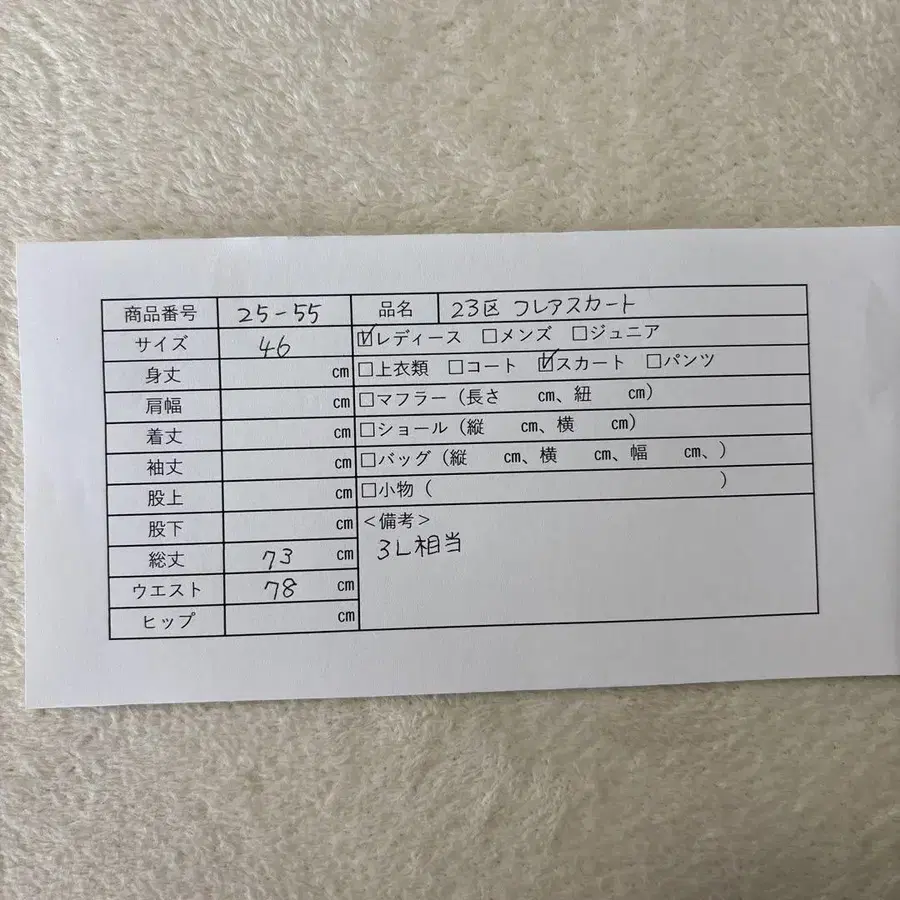 商品番号 25-55 品名 23区 フレアスカート
サイズ 46 ☑レディース □メンズ □ジュニア
身丈 cm □上衣類 □コート ☑スカート □パンツ
肩幅 cm □マフラー（長さ cm、紐 cm）
着丈 cm □ショール（縦 cm、横 cm）
袖丈 cm □バッグ（縦 cm、横 cm、幅 cm、）
股上 cm □小物（ ）
股下 cm ＜備考＞
総丈 73 cm 3L相当
ウエスト 78 cm
ヒップ cm